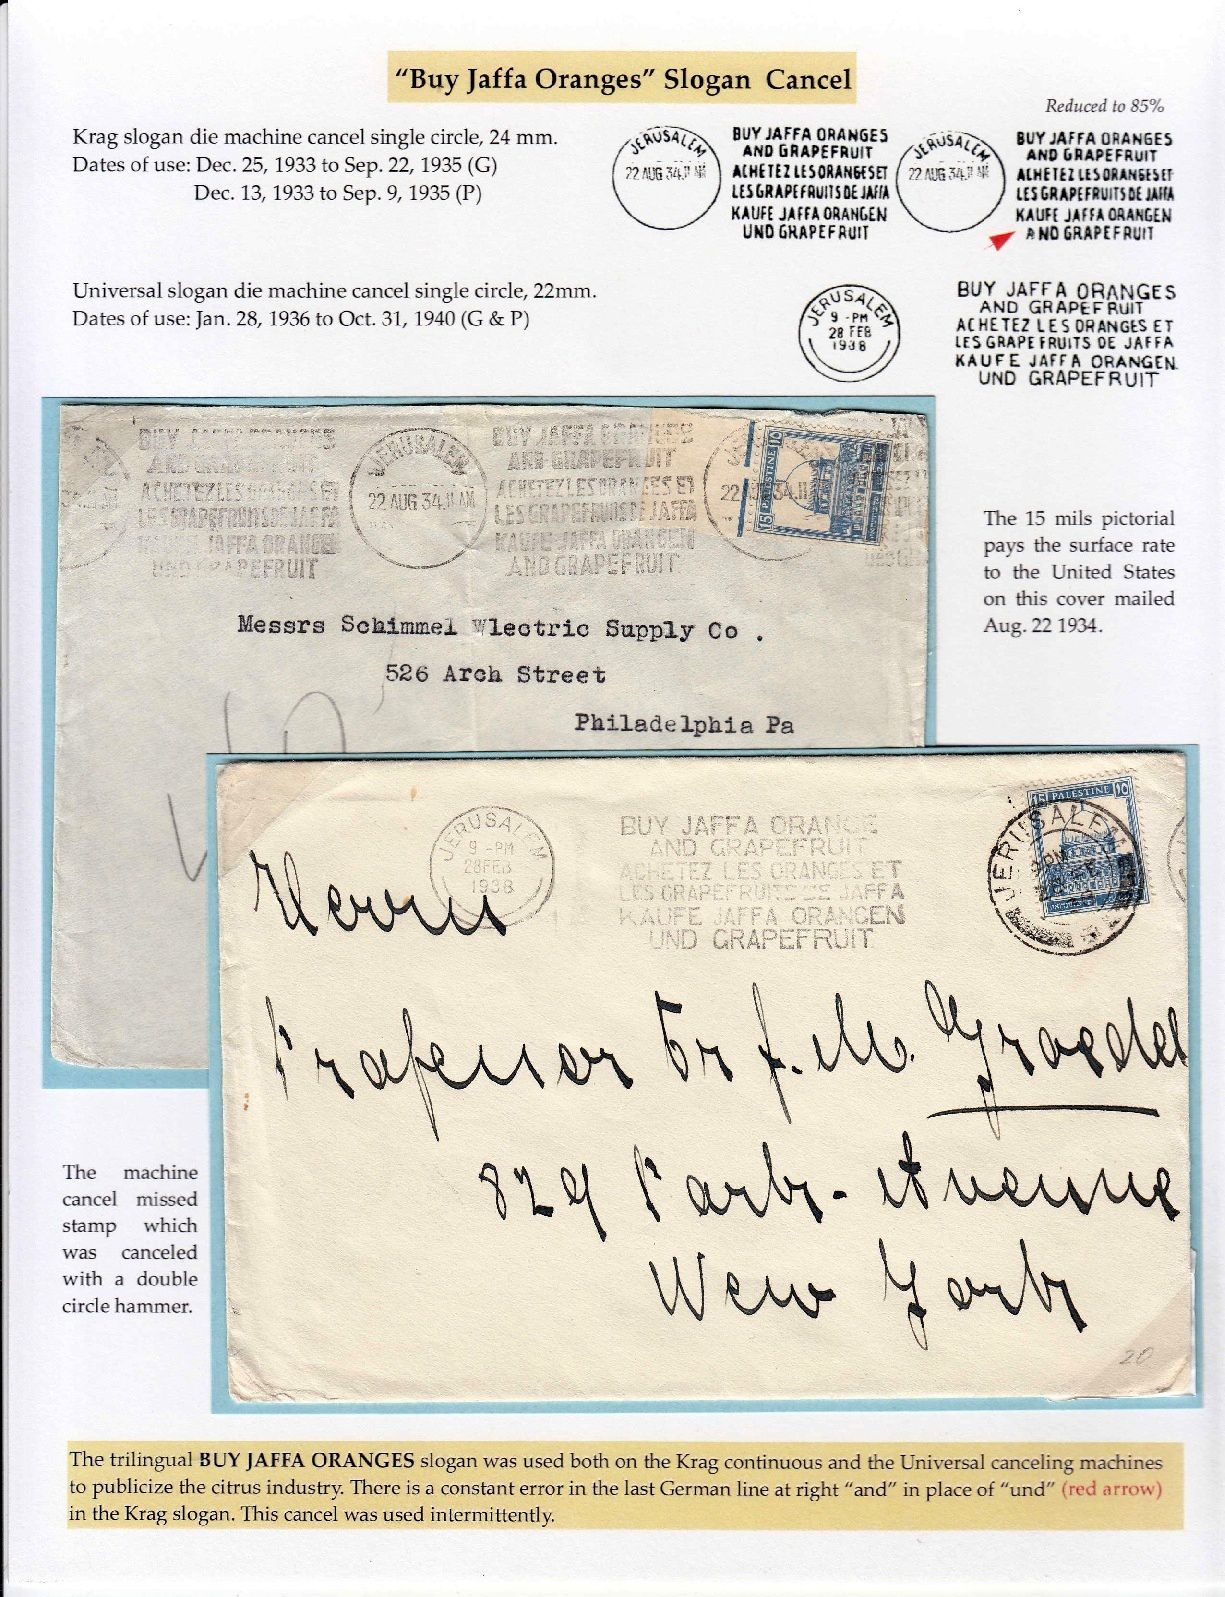 “Buy Jaffa Oranges” Slogan Cancel
Reduced to 85%
Krag slogan die machine cancel single circle, 24 mm.
Dates of use: Dec. 25, 1933 to Sep. 22, 1935 (G)
Dec. 13, 1933 to Sep. 9, 1935 (P)
JERUSALEM
22 AUG 34.11 AM
BUY JAFFA ORANGES
AND GRAPEFRUIT
ACHETEZ LES ORANGES ET
LES GRAPEFRUITS DE JAFFA
KAUFE JAFFA ORANGEN
UND GRAPEFRUIT
JERUSALEM
22 AUG 34.11 AM
BUY JAFFA ORANGES
AND GRAPEFRUIT
ACHETEZ LES ORANGES ET
LES GRAPEFRUITS DE JAFFA
KAUFE JAFFA ORANGEN
AND GRAPEFRUIT
Universal slogan die machine cancel single circle, 22mm.
Dates of use: Jan. 28, 1936 to Oct. 31, 1940 (G & P)
JERUSALEM
9 -PM
28 FEB
1938
BUY JAFFA ORANGES
AND GRAPEFRUIT
ACHETEZ LES ORANGES ET
LES GRAPEFRUITS DE JAFFA
KAUFE JAFFA ORANGEN
UND GRAPEFRUIT
BUY JAFFA ORANGES
AND GRAPEFRUIT
ACHETEZ LES ORANGES ET
LES GRAPEFRUITS DE JAFFA
JAFFA ORANGEN
UND GRAPEFRUIT
JERUSALEM
22 AUG 34.11 AM
BUY JAFFA ORANGES
AND GRAPEFRUIT
ACHETEZ LES ORANGES ET
LES GRAPEFRUITS DE JAFFA
KAUFE JAFFA ORANGEN
AND GRAPEFRUIT
22 34.11
15 PALESTINE 10
Messrs Schimmel Wlectric Supply Co .
526 Arch Street
Philadelphia Pa
The 15 mils pictorial
pays the surface rate
to the United States
on this cover mailed
Aug. 22 1934.
JERUSALEM
9 -PM
28 FEB
1938
BUY JAFFA ORANGE
AND GRAPEFRUIT
ACHETEZ LES ORANGES ET
LES GRAPEFRUITS DE JAFFA
KAUFE JAFFA ORANGEN
UND GRAPEFRUIT
15 PALESTINE 10
JERUSALEM
Herrn
Professor Dr F. M. Groedel
829 Park-Avenue
New York
20
The machine
cancel missed
stamp which
was canceled
with a double
circle hammer.
The trilingual BUY JAFFA ORANGES slogan was used both on the Krag continuous and the Universal canceling machines
to publicize the citrus industry. There is a constant error in the last German line at right “and” in place of “und” (red arrow)
in the Krag slogan. This cancel was used intermittently.